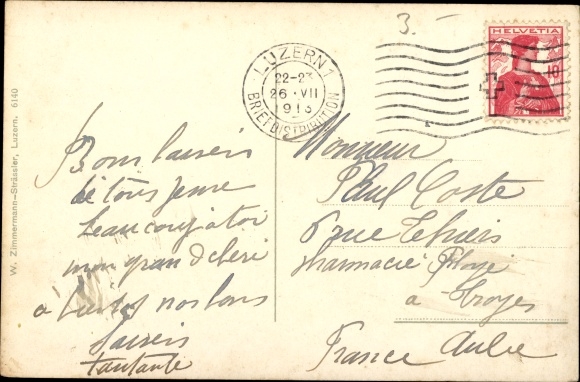 3.—
HELVETIA
10
LUZERN 1
22-23
26. VII
1913
BRIEFDISTRIBUTION
W. Zimmermann-Strässler, Luzern. 6140
Bons baisers
de tous
beaucoup a toi
mon gran cheri
a nos bons
baisers
tantante
Monsieur
Paul Coste
6 rue Thiers
pharmacie
a Troyes
France Aube